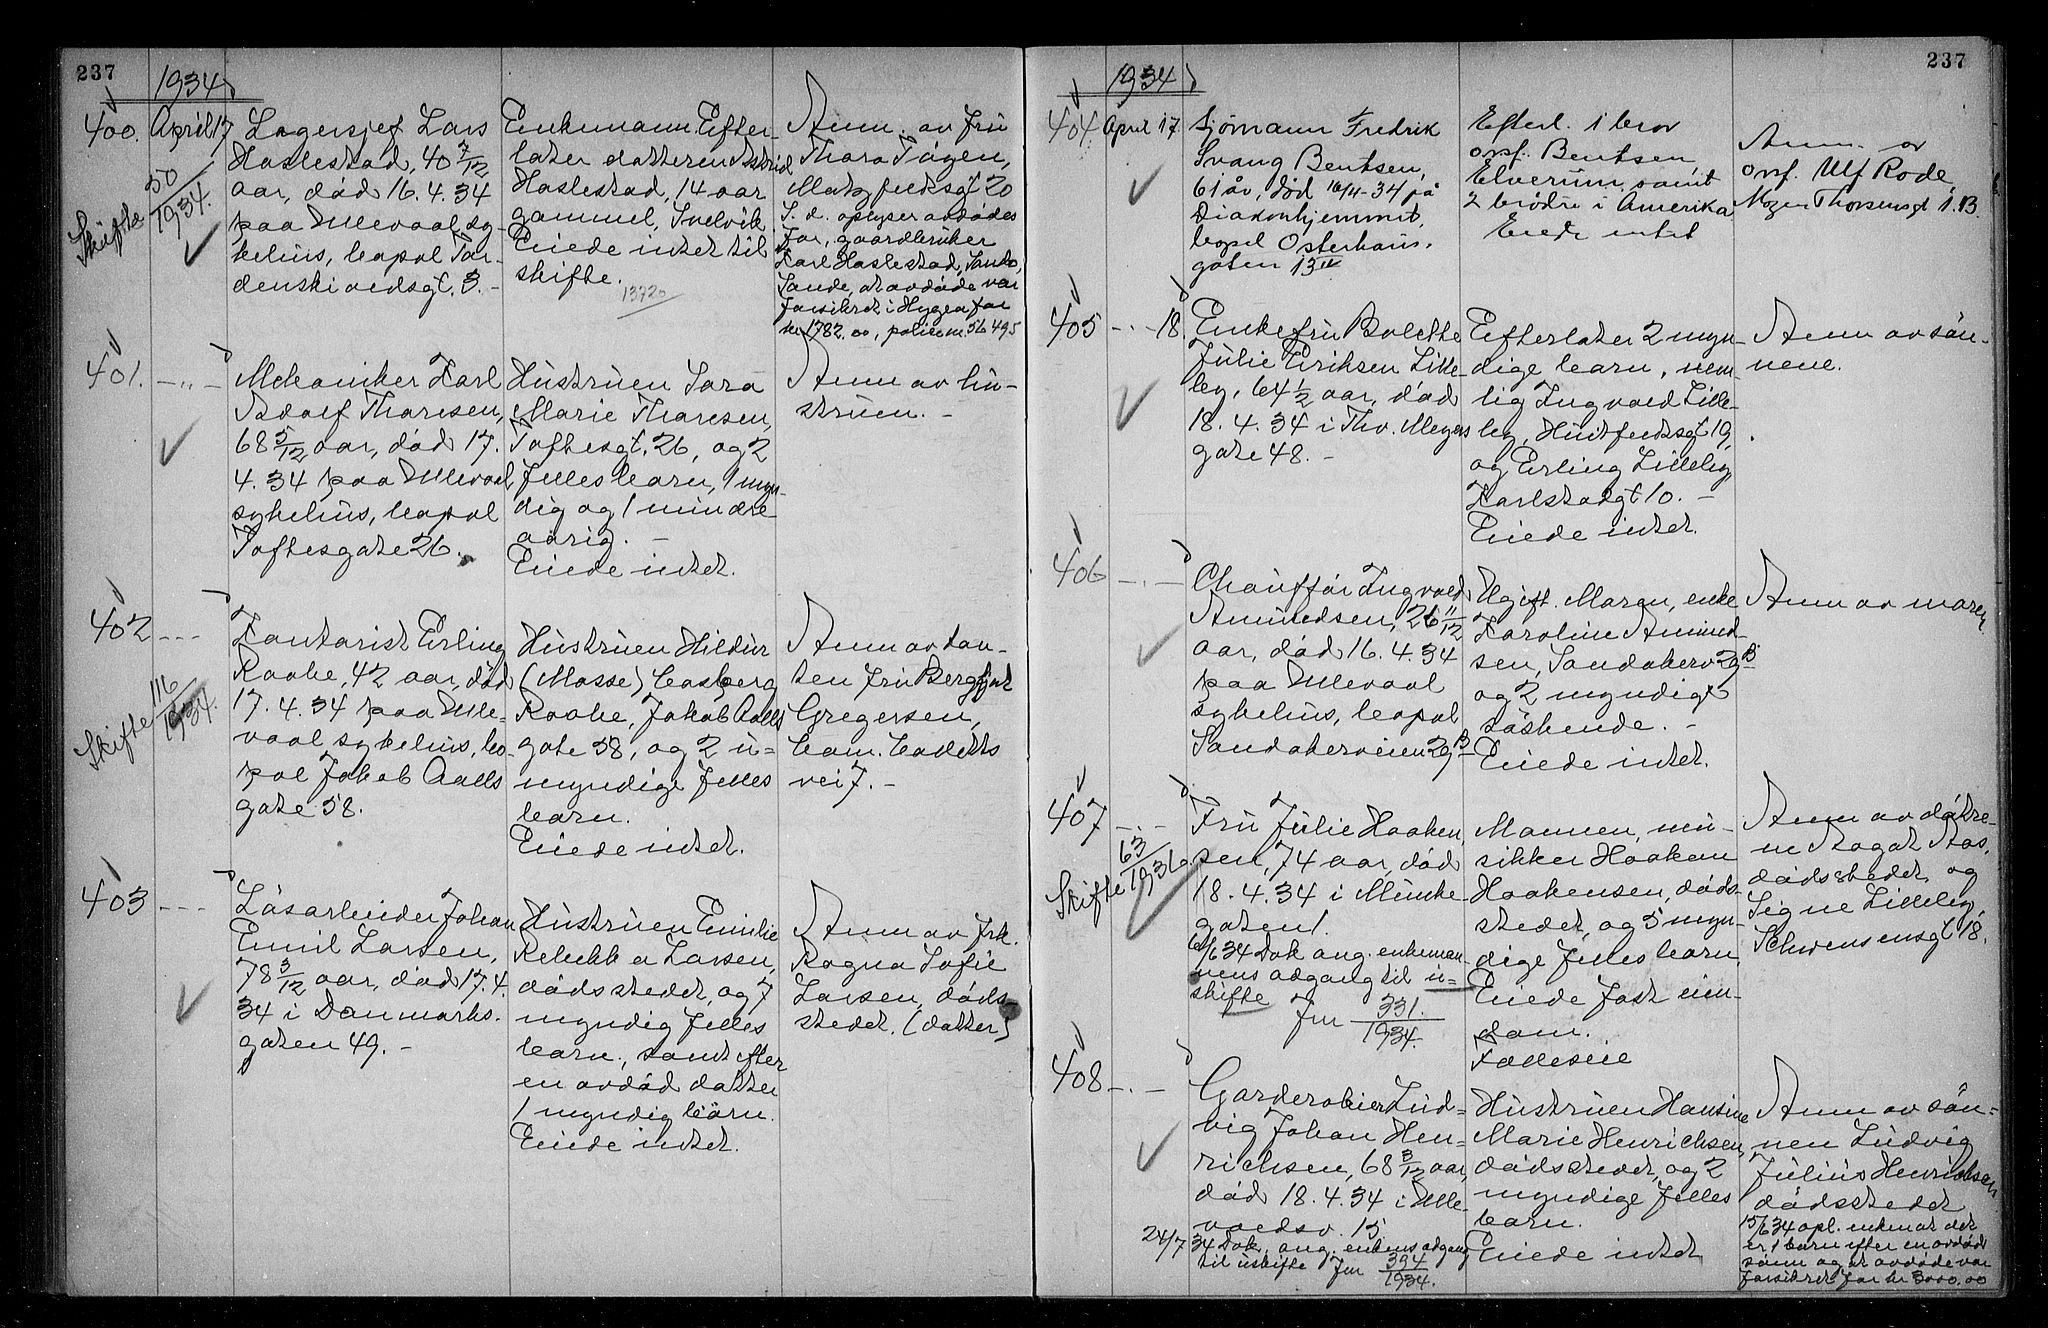 237
1934
400.
April 17
Lagersjef Lars
Haslestad, 40 7/12
aar, död 16.4.34
paa Ullevaal sy-
kehus, bopæl Tor-
denskioldsgt. 3. -
Skifte 50/1934.
Enkemann. Efter-
later datteren Astrid
Haslestad, 14 aar
gammel, Svelvik
Eiede intet til
skifte.
13720
Anm. av fru
Thora Tögen,
Matz
S. d. oplyser avdödes
far, gaardbruker
Karl Haslestad, Sando,
Sande, at avdöde var
forsikret i Hygea for
kr 1782.00, polise nr. 56495
401.
-"-
Mekaniker Karl
Adolf Thoresen,
68 5/12 aar, död 17.
4.34 paa Ullevaal
sykehus, bopæl
Toftesgate 26.
Hustruen Sara
Marie Thoresen,
Toftesgt. 26, og 2
fellesbarn, 1 myn-
dig og 1 mindre-
aarig. -
Eiede intet.
Anm av hu-
struen. -
402
---
Kontorist Erling
Raabe, 42 aar, död
17.4.34 paa Ulle-
vaal sykehus, bo-
pæl Jakob Aalls
gate 58.
Skifte 116/1934.
Hustruen Hildur
(Mosse) Casberg
Raabe, Jakob Aalls
gate 58, og 2 u-
myndige felles
barn.
Eiede intet.
Anm av tan-
ten fru Bergljot
Gregersen,
Cam. Colletts
vei 7. -
403
---
Läsarbeider Johan
Emil Larsen,
78 3/12 aar, död 17.4.
34 i Danmarks-
gaten 49. -
Hustruen Emilie
Rebekka Larsen,
dödsstedet, og 7
myndig felles
barn, samt efter
en avdöd datter
1 myndig barn.
Eiede intet.
Anm av frk.
Ragna Sofie
Larsen, döds
stedet. (datter)
237
1934
404.
April 17.
Sjömann Fredrik
Svang Bentsen,
61 år, död 16/4-34 på
Diakonhjemmet,
bopel Osterhaus-
gaten 13 IV
Efterl. 1 bror
ovsf. Bentsen
Elverum samt
2 brödre i Amerika
Eiede intet
Anm. av
ovsf. Ulf Rode
Mogens Thorsensgt 1.B.
405
-"- 18.
Enkefru Bolette
Julie Eriksen Lille-
by, 64 1/2 aar, död
18.4.34 i Thv. Meyers
gate 48. -
Efterlater 2 myn-
dige barn, nem-
lig Ingvald Lille-
by, Huitfeldtsgt 19,
og Erling Lilleby,
Karlstadgt 10. -
Eiede intet.
Anm av sön-
nene.
406
-"-
Chaufför Ingvald
Amundsen, 26 11/12
aar, död 16.4.34
paa Ullevaal
sykehus, bopæl
Sandakerveien 29 B
Ugift. Moren, enke
Karoline Amund-
sen, Sandakerv 29 B
og 2 myndige
söskende. -
Eiede intet.
Anm av moren
407
-"-
Fru Julie Haaken
sen, 74 aar, död
18.4.34 i Munke-
gaten 1.
6/6 34 Dok ang. enkeman
nens adgang til u-
skifte Jnr 331./1934.
Skifte 63/1936.
Mannen, mu-
sikker Haakon
Haakensen, döds-
stedet, og 5 myn-
dige fellesbarn
Eiede fast eien-
dom.
Fælleseie
Anm av döttre-
ne Aagot Aas,
dödsstedet og
Signe Lilleby,
Schwensensgt 18.
408
-"-
Garderobier Lud-
vig Johan Hen-
richsen, 68 3/12 aar,
död 18.4.34 i Ulle-
voldsv. 15
24/7 34 Dok. ang. enkens adgang
til uskifte Jnr 394/1934.
Hustruen Hansine
Marie Henrichsen,
dödsstedet, og 2
myndige felles
barn.
Eiede intet
Anm av sön-
nen Ludvig
Julius Henrichsen
dödsstedet
15/6 34 opl. enken at det
er 1 barn efter en avdöd
sönn og at avdöde var
forsikret for kr 3000.00